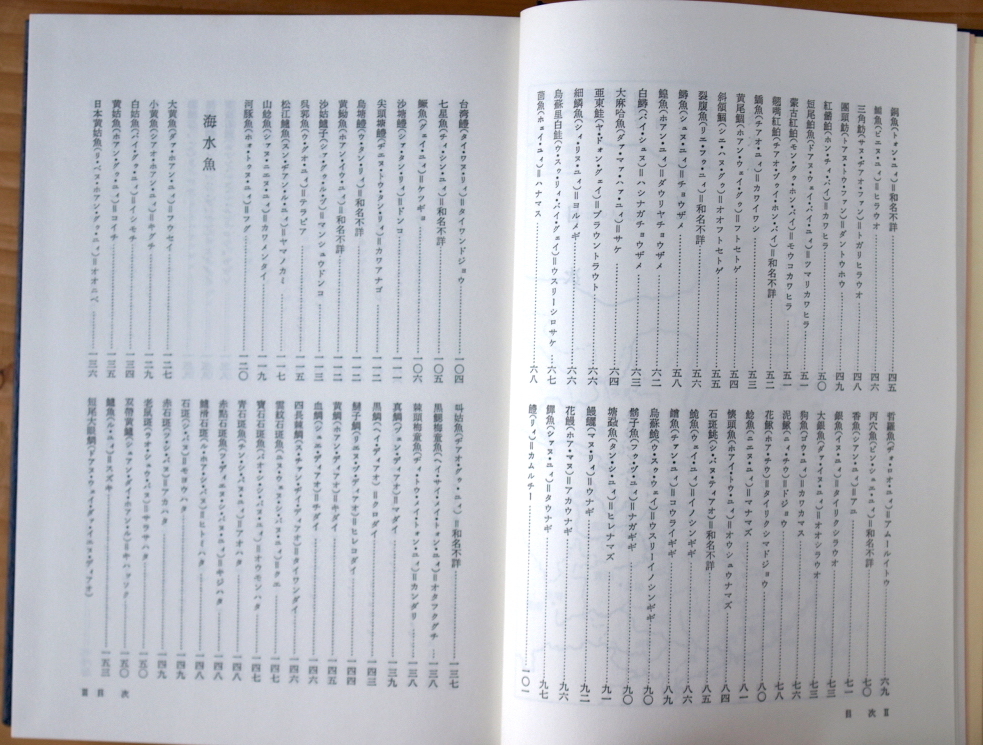 銅魚(トォン・ユィ)=和名不詳……四五
鱤魚(ビエヌ・ユィ)=ヒラウオ……
三角魴(サヌ・ヂアオ・ファン)=トガリヒラウオ……四八
團頭魴(トァヌ・トウ・ファン)=ダントウホウ……四九
紅鰭鮊(ホン・ティ・バイ)=カワヒラ……五〇
短尾鮊魚(ドアヌ・ウェイ・バイ・ユィ)=ツマリカワヒラ
蒙古紅鮊(モン・グゥ・ホン・バイ)=モウコカワヒラ……五一
翹嘴紅鮊(チアオ・ヅゥイ・ホン・バイ)=和名不詳……五二
鯝魚(チアオ・ユィ)=カワイワシ……五三
黄尾鯝(ホアン・ウェイ・グゥ)=フトセトゲ……五四
斜頜鯝(シエ・ヌ・グゥ)=オオフトセトゲ……五五
裂腹魚(リエ・フゥ・ユィ)=和名不詳……五七
鱘魚(シュヌ・ユィ)=チョウザメ……五八
鰉魚(ホアン・ユィ)=ダウリヤチョウザメ……六二
白鱘(バイ・シュヌ)=ハシナガチョウザメ……六三
大麻哈魚(ダァ・マァ・ハァ・ユィ)=サケ……六四
亜東鮭(ヤ・ドォン・グェイ)=ブラウントラウト……
細鱗魚(シィ・リヌ・ユィ)=ヨルメギ……六六
烏蘇里白鮭(ウ・スゥ・リィ・バイ・グェイ)=ウスリーシロサケ……六七
茴魚(ホェイ・ユィ)=ハナマス……六八
哲羅魚(ヂァ・ロオ・ユィ)=アムールイトウ……六九
丙穴魚(ビン・シュエ・ユィ)=和名不詳……七〇
香魚(シアン・ユィ)=アユ……七一
銀魚(イヌ・ユィ)=タイリクシラウオ……七三
大銀魚(ダァ・イヌ・ユィ)=オオシラウオ……七三
狗魚(ゴウ・ユィ)=カワカマス……七六
泥鰍(ニィ・チウ)=ドジョウ……七八
花鰍(ホァ・チウ)=タイリクシマドジョウ……八〇
鯰魚(ニエヌ・ユィ)=マナマズ……八一
懐頭魚(ホアイ・トウ・ユィ)=オウシュウナマズ……八四
石斑鮡(シ・バヌ・ティアオ)=和名不詳……八五
鮠魚(ウェイ・ユィ)=イノシシギギ……八六
鱨魚(チァン・ユィ)=コウライギギ……八八
烏蘇鮠(ウ・スゥ・ウェイ)=ウスリーイノシシギギ……九〇
鬍子魚(フゥ・ヅ・ユィ)=ナガギギ……九〇
塘蝨魚(タン・シ・ユィ)=ヒレナマズ……九一
鰻鱺(マヌ・リィ)=ウナギ……九二
花鰻(ホァ・マヌ)=アカウナギ……九六
鱓魚(シァヌ・ユィ)=タウナギ……九七
鱧(リィ)=カムルチー……一〇一
目次 Ⅱ
台湾鱧(タイ・ワヌ・リィ)=タイワンドジョウ……一〇四
七星魚(チィ・シン・ユィ)……一〇五
鱖魚(グェイ・ユィ)=ケツギョ……一〇六
沙塘鱧(シァ・タン・リィ)=ドンコ……一一一
尖頭塘鱧(ヂエヌ・トウ・タン・リィ)=カワアナゴ……一一二
烏塘鱧(ウ・タン・リィ)=和名不詳……一一二
黄䱂魚(ホアン・イウ・ユィ)=和名不詳……一一二
沙姑鱸子(シァ・グゥ・ルゥ・ヅ)=マンシュウドンコ……一一三
呉郭魚(ウ・グオ・ユィ)=テラピア……一一五
松江鱸魚(スン・ヂアン・ル・ユィ)=ヤマノカミ……一一七
山鯰魚(シァヌ・ニエヌ・ユィ)=カワメンタイ……一一九
河豚魚(ホォ・トゥヌ・ユィ)=フグ……一二〇
海水魚
大黄魚(ダァ・ホァン・ユィ)=フウセイ……一二七
小黄魚(シアオ・ホアン・ユィ)=キグチ……一二九
白姑魚(バイ・グゥ・ユィ)=イシモチ……一三四
黄姑魚(ホアン・グゥ・ユィ)=コイチ……一三五
日本黄姑魚(リ・ベヌ・ホアン・グゥ・ユィ)=オオニベ……一三六
叫姑魚(ヂアオ・グゥ・ユィ)=和名不詳……一三七
黒鰓梅童魚(ヘイ・サイ・メイ・トォン・ユィ)=オタフクグチ……一三八
棘頭梅童魚(ヂィ・トウ・メイ・トォン・ユィ)=カンダリ……一三八
真鯛(ヂェン・ディアオ)=マダイ……一三九
黒鯛(ヘイ・ディアオ)=クロダイ……一四三
犂子鯛(リエヌ・ヅ・ディアオ)=ヒレコダイ……一四四
黄鯛(ホアン・ディアオ)=キダイ……一四四
血鯛(シュエ・ディアオ)=チダイ……一四六
四長棘鯛(ス・チァン・ヂィ・ディアオ)=タイワンダイ……一四六
雲紋石斑魚(ユヌ・ウェヌ・シ・バヌ・ユィ)=クエ……一四七
宝石石斑魚(バオ・シ・シ・バヌ・ユィ)=オウモンハタ……一四七
青石斑魚(チン・シ・バヌ・ユィ)=アオハタ……一四八
赤點石斑魚(チ・ディエヌ・シ・バヌ・ユィ)=キジハタ……一四八
鱸滑石斑(ル・ホァ・シ・バヌ)=ヒトミハタ……一四八
石斑(シ・バヌ)=モヨウハタ……一四九
赤石斑(ツ・シ・バヌ)=アカハタ……一四九
老鼠斑(ラオ・シュウ・バヌ)=サラサハタ……一五〇
双帯黄鱸(シュアン・ダイ・ホァン・ル)=キハッソク……一五〇
鱸魚(ル・ユィ)=スズキ……一五三
短尾大眼鯛(ドアヌ・ウェイ・ダァ・イエヌ・ディアオ)
Ⅲ 目次